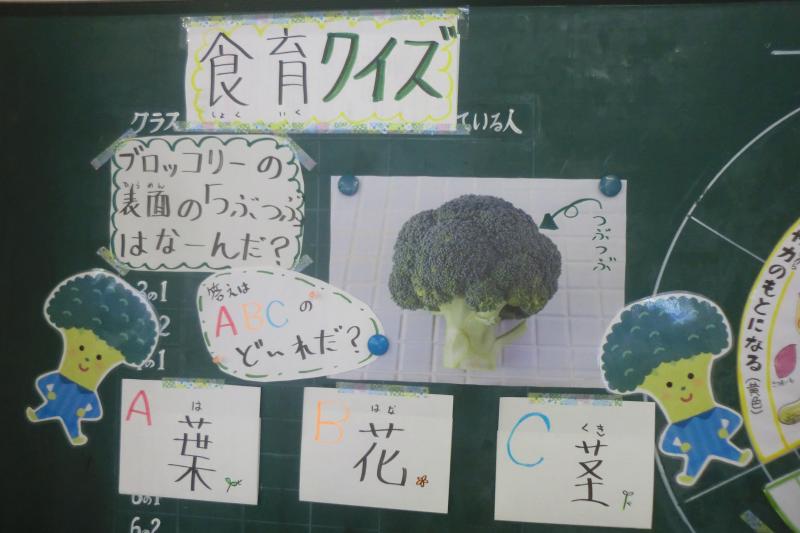 食育クイズ
しょく いく
クラス
ている人
ブロッコリーの
表面の「つぶつぶ
ひょうめん
はなーんだ?
つぶつぶ
答えは
ABCの
ど〜れだ?
の1
2
の1
A
葉
は
B
花
はな
C
茎
くき
6の2
力のもとになる(黄色)